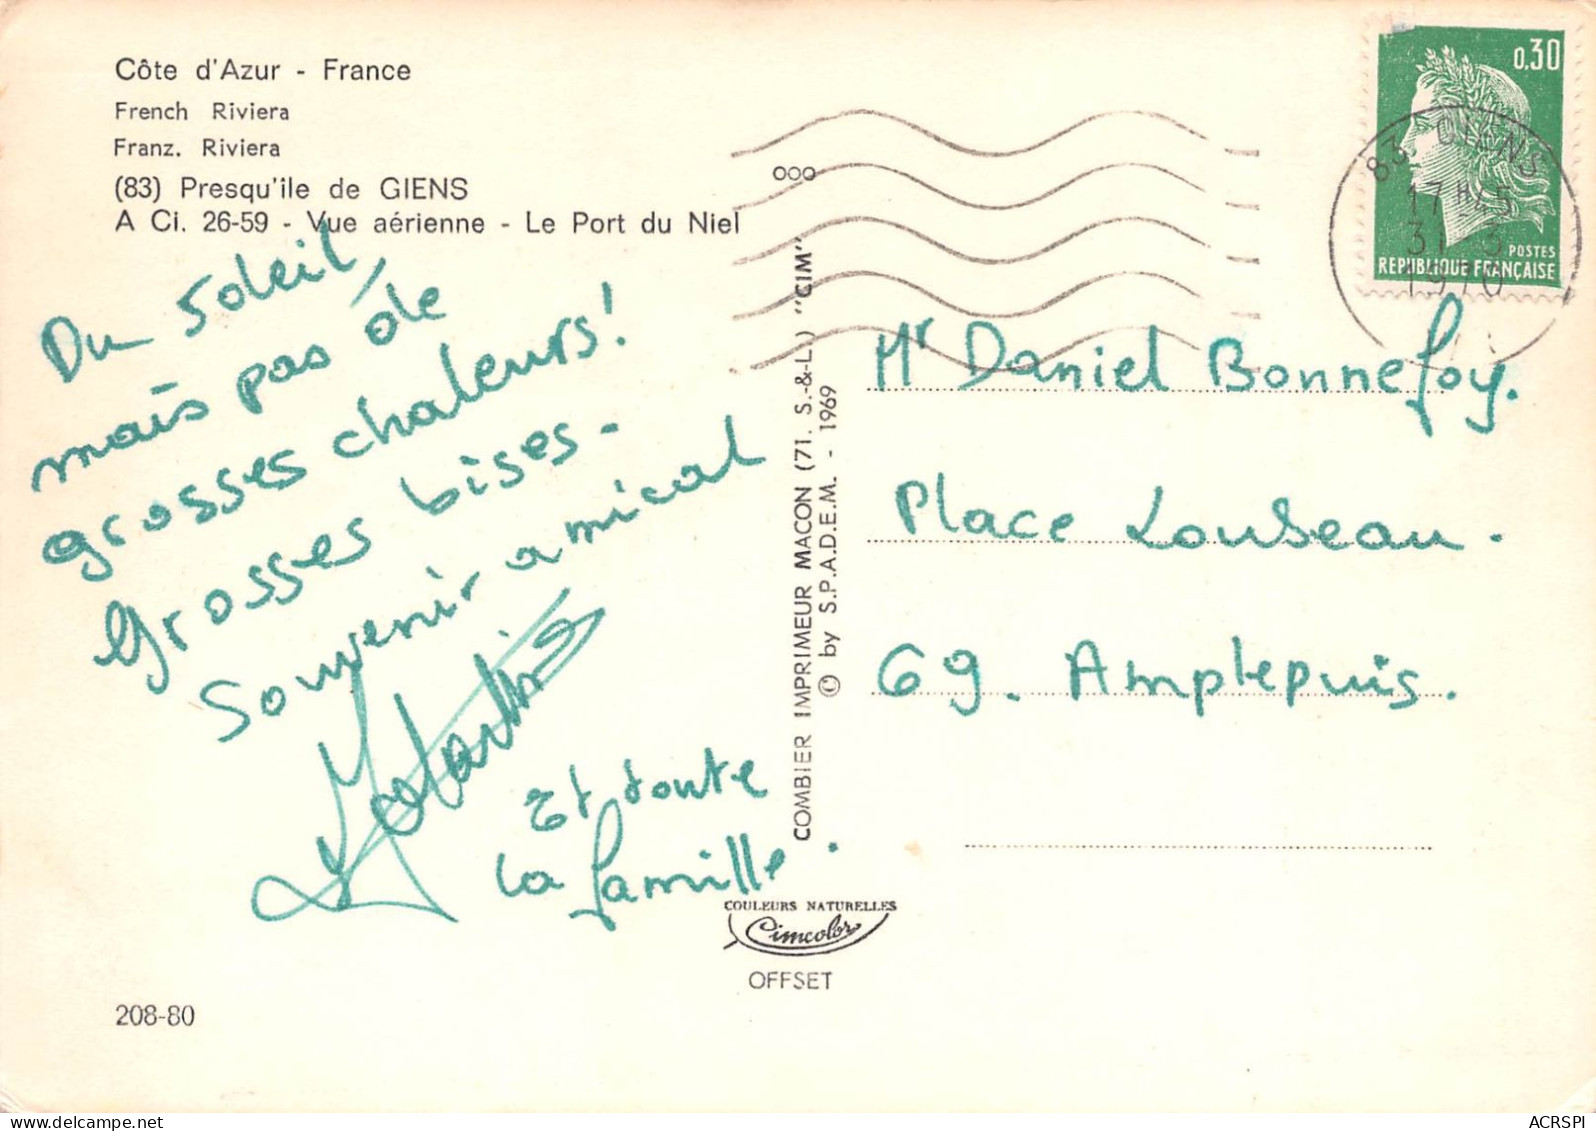 Côte d'Azur - France
French Riviera
Franz. Riviera
(83) Presqu'ile de GIENS
A Ci. 26-59 - Vue aérienne - Le Port du Niel
Du soleil,
mais pas de
grosses chaleurs!
Grosses bises.
Souvenir amical
Et toute
la famille.
208-80
COMBIER IMPRIMEUR MACON (71. S.-&-L.) "CIM"
© by S.P.A.D.E.M. - 1969
COULEURS NATURELLES
Cimcolor
OFFSET
0,30
POSTES
REPUBLIQUE FRANÇAISE
83 GIENS
17 H 45
31 3
1970
Mr Daniel Bonnefoy.
Place
69. Amplepuis.
ACRSPI